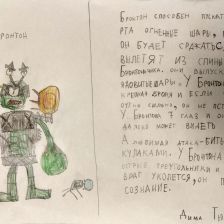 БРОНТОН
БРОНТОН СПОСОБЕН ПУСКАТ
РТА ОГНЕННЫЕ ШАРЫ,
ОН БУДЕТ СРАЖАТЬСЯ,
ВЫЛЕТЯТ ИЗ СПИНЫ
ОНИ ВЫПУСК
ЯДОВИТЫЕ ШАРЫ. У БРОНТОН
БРОНЯ И ЕСЛИ
СИЛЬНО, ОН НЕ
У БРОНТОНА 7 ГЛАЗ И ОН
ДАЛЕКО МОЖЕТ ВИДЕТЬ
А ЛЮБИМАЯ АТАКА-БИТЬ
КУЛАКАМИ. У БРОНТОНА
ОСТРЫЕ ТРЕУГОЛЬНИКИ И
ВРАГ УКОЛЕТСЯ, ОН П
СОЗНАНИЕ.
ДИМА